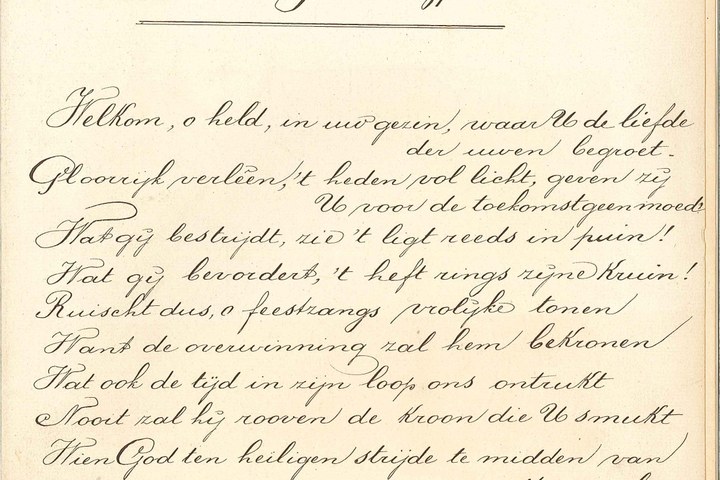 Welkom, o held, in uw gezin, waar U de liefde
der uwen begroet.
Gloorrijk verlêen,'t heden vol licht, geven zij
U voor de toekomst geen moed?
Wat gij bestrijdt, zie 't ligt reeds in puin!
Wat gij bevordert, 't heft rings zijne kruin!
Ruischt dus, o feestzangs vrolijke tonen
Want de overwinning zal hem bekronen
Wat ook de tijd in zijn loop ons ontrukt
Nooit zal hij rooven de kroon die U smukt
Wien God ten heiligen strijde te midden van